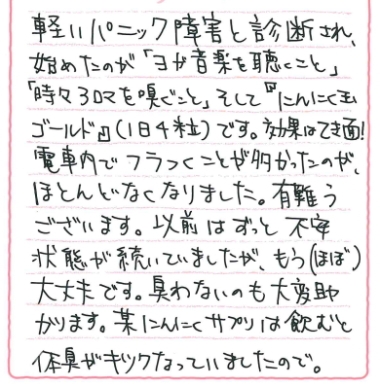 軽いパニック障害と診断され、
始めたのが「ヨガ音楽を聴くこと」
「時々アロマを嗅ぐこと」そして『にんにく玉
ゴールド』(1日4粒)です。効果はてき面!
電車内でフラつくことが多かったのが、
ほとんどなくなりました。有難う
ございます。以前はずっと不安
状態が続いていましたが、もう(ほぼ)
大丈夫です。臭わないのも大変助
かります。某にんにくサプリは飲むと
体臭がキツクなっていましたので。